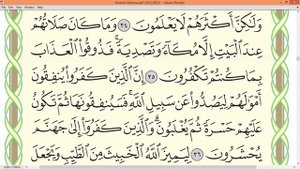 Mushaf Madina.pdf (SECURED) - Adobe Reader
وَلَٰكِنَّ أَكْثَرَهُمْ لَا يَعْلَمُونَ ٣٤ وَمَا كَانَ صَلَاتُهُمْ
عِندَ ٱلْبَيْتِ إِلَّا مُكَآءً وَتَصْدِيَةً ۚ فَذُوقُوا۟ ٱلْعَذَابَ
بِمَا كُنتُمْ تَكْفُرُونَ ٣٥ إِنَّ ٱلَّذِينَ كَفَرُوا۟ يُنفِقُونَ
أَمْوَٰلَهُمْ لِيَصُدُّوا۟ عَن سَبِيلِ ٱللَّهِ ۚ فَسَيُنفِقُونَهَا ثُمَّ تَكُونُ
عَلَيْهِمْ حَسْرَةً ثُمَّ يُغْلَبُونَ ۗ وَٱلَّذِينَ كَفَرُوٓا۟ إِلَىٰ جَهَنَّمَ
يُحْشَرُونَ ٣٦ لِيَمِيزَ ٱللَّهُ ٱلْخَبِيثَ مِنَ ٱلطَّيِّبِ وَيَجْعَلَ